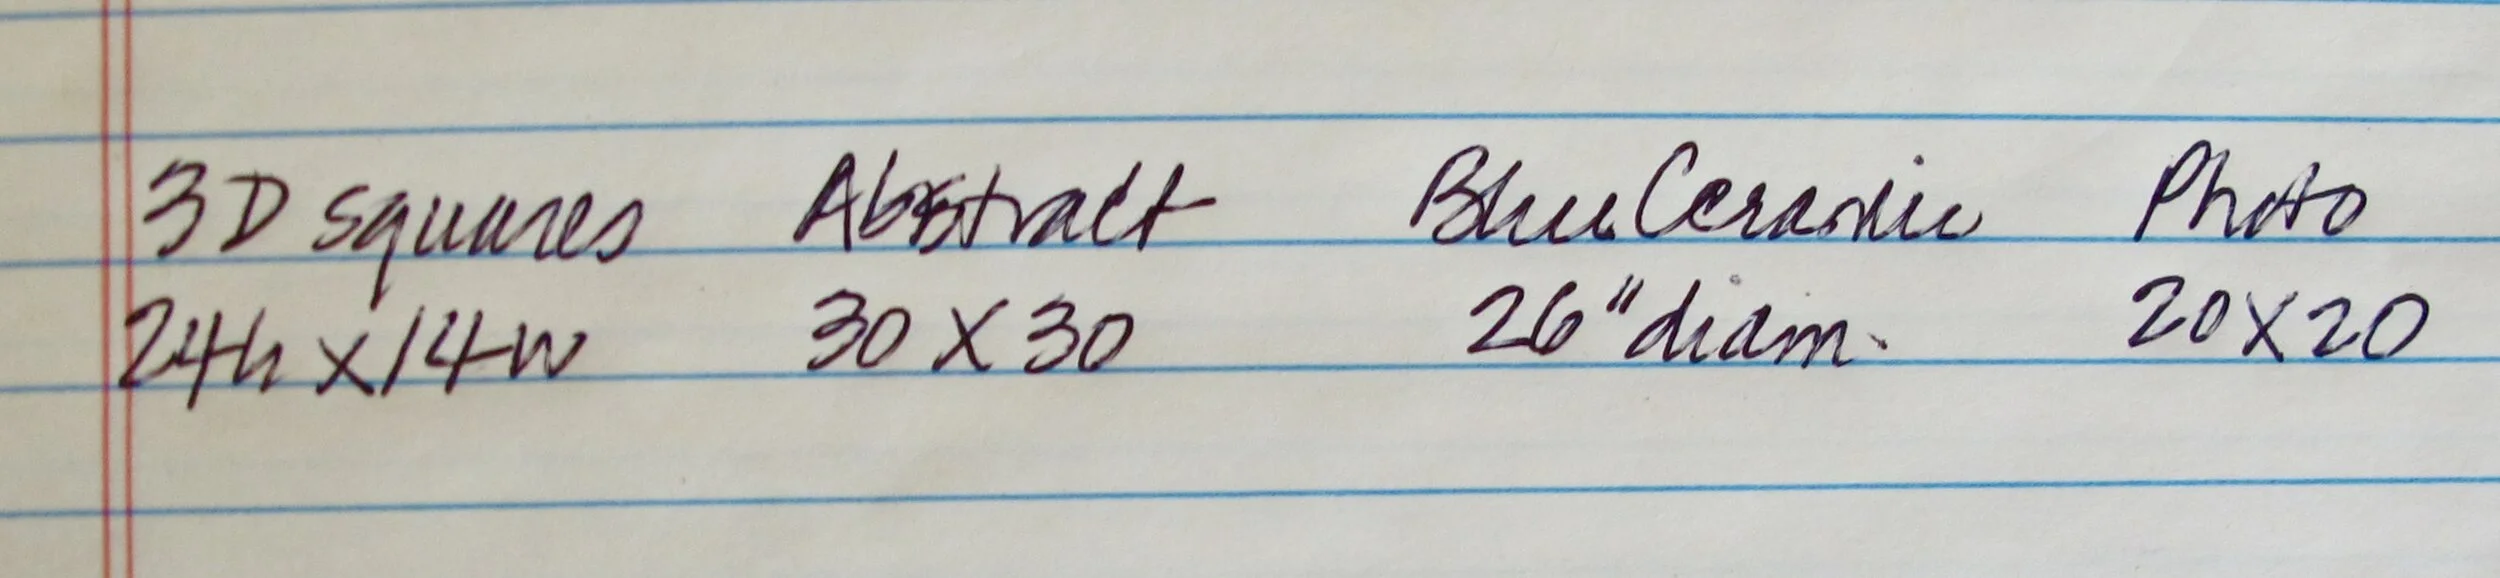 3D squares Abstract Blue Ceramic Photo
24h x 14w 30 x 30 26" diam. 20 x 20